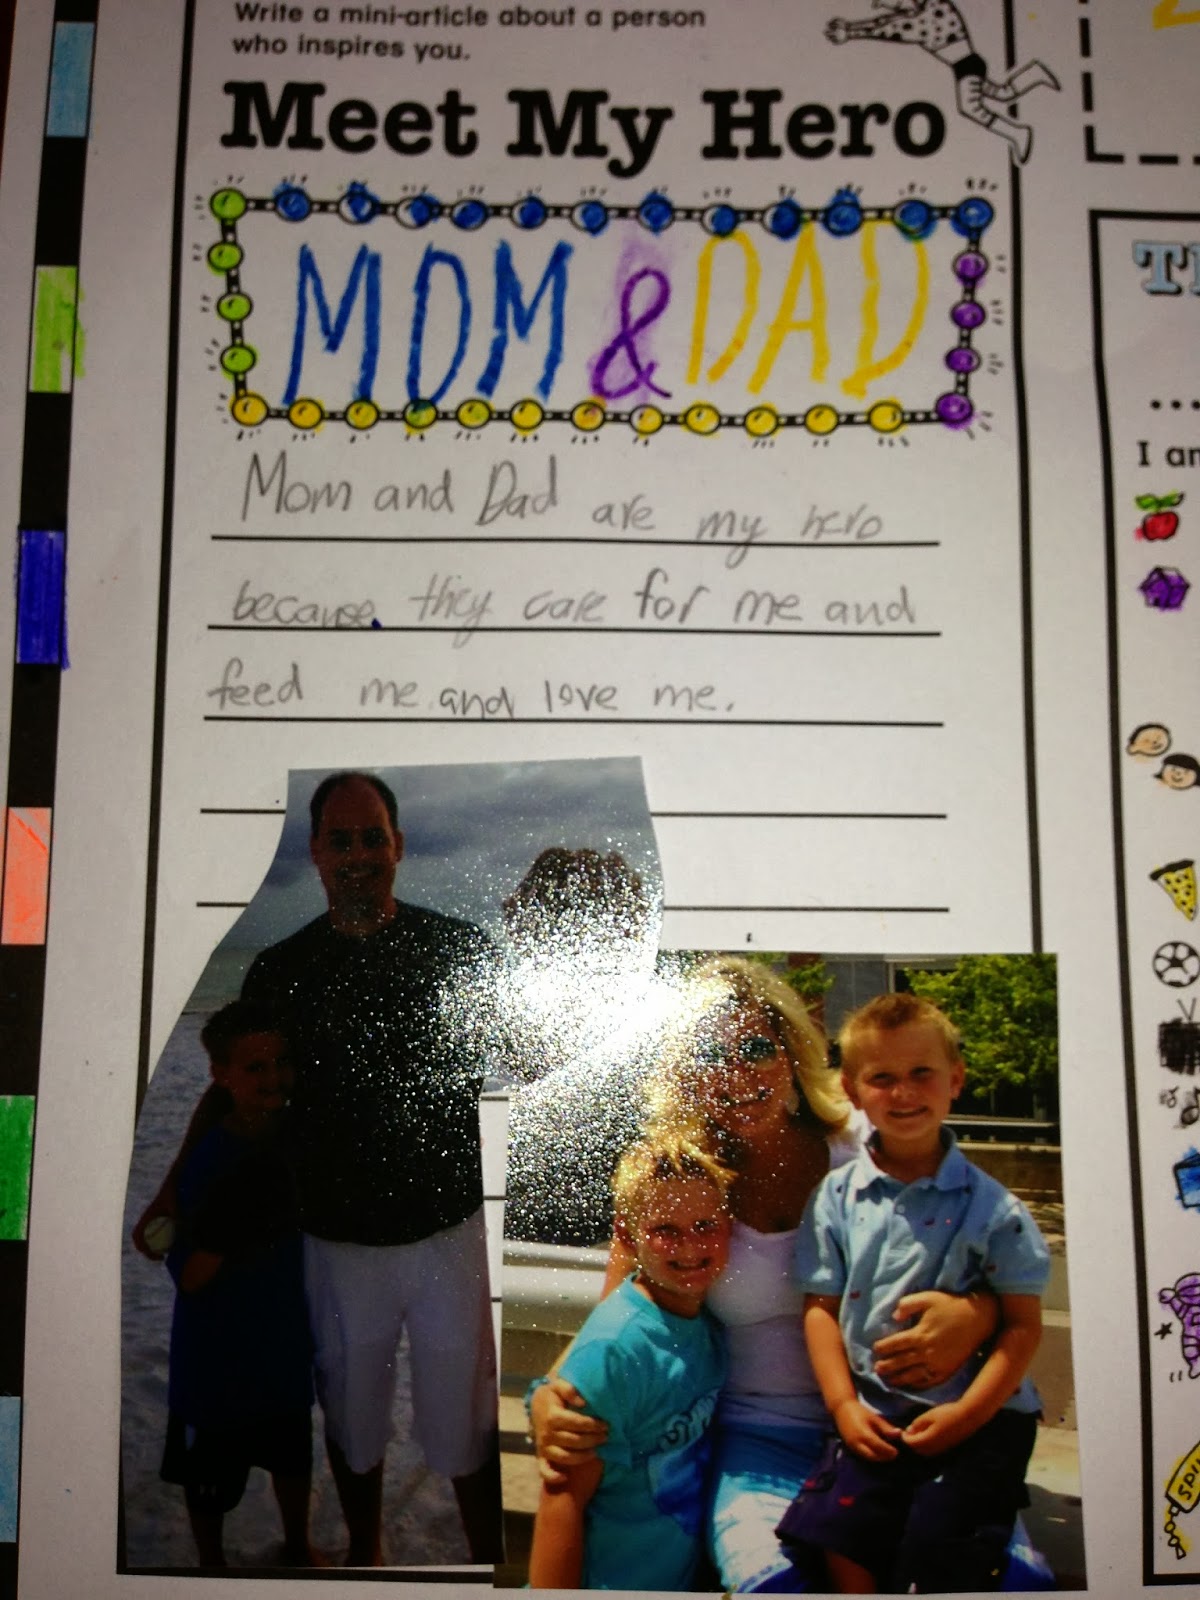 Write a mini-article about a person
who inspires you.
Meet My Hero
MOM & DAD
Mom and Dad are my hero
because they care for me and
feed me and love me.
I am